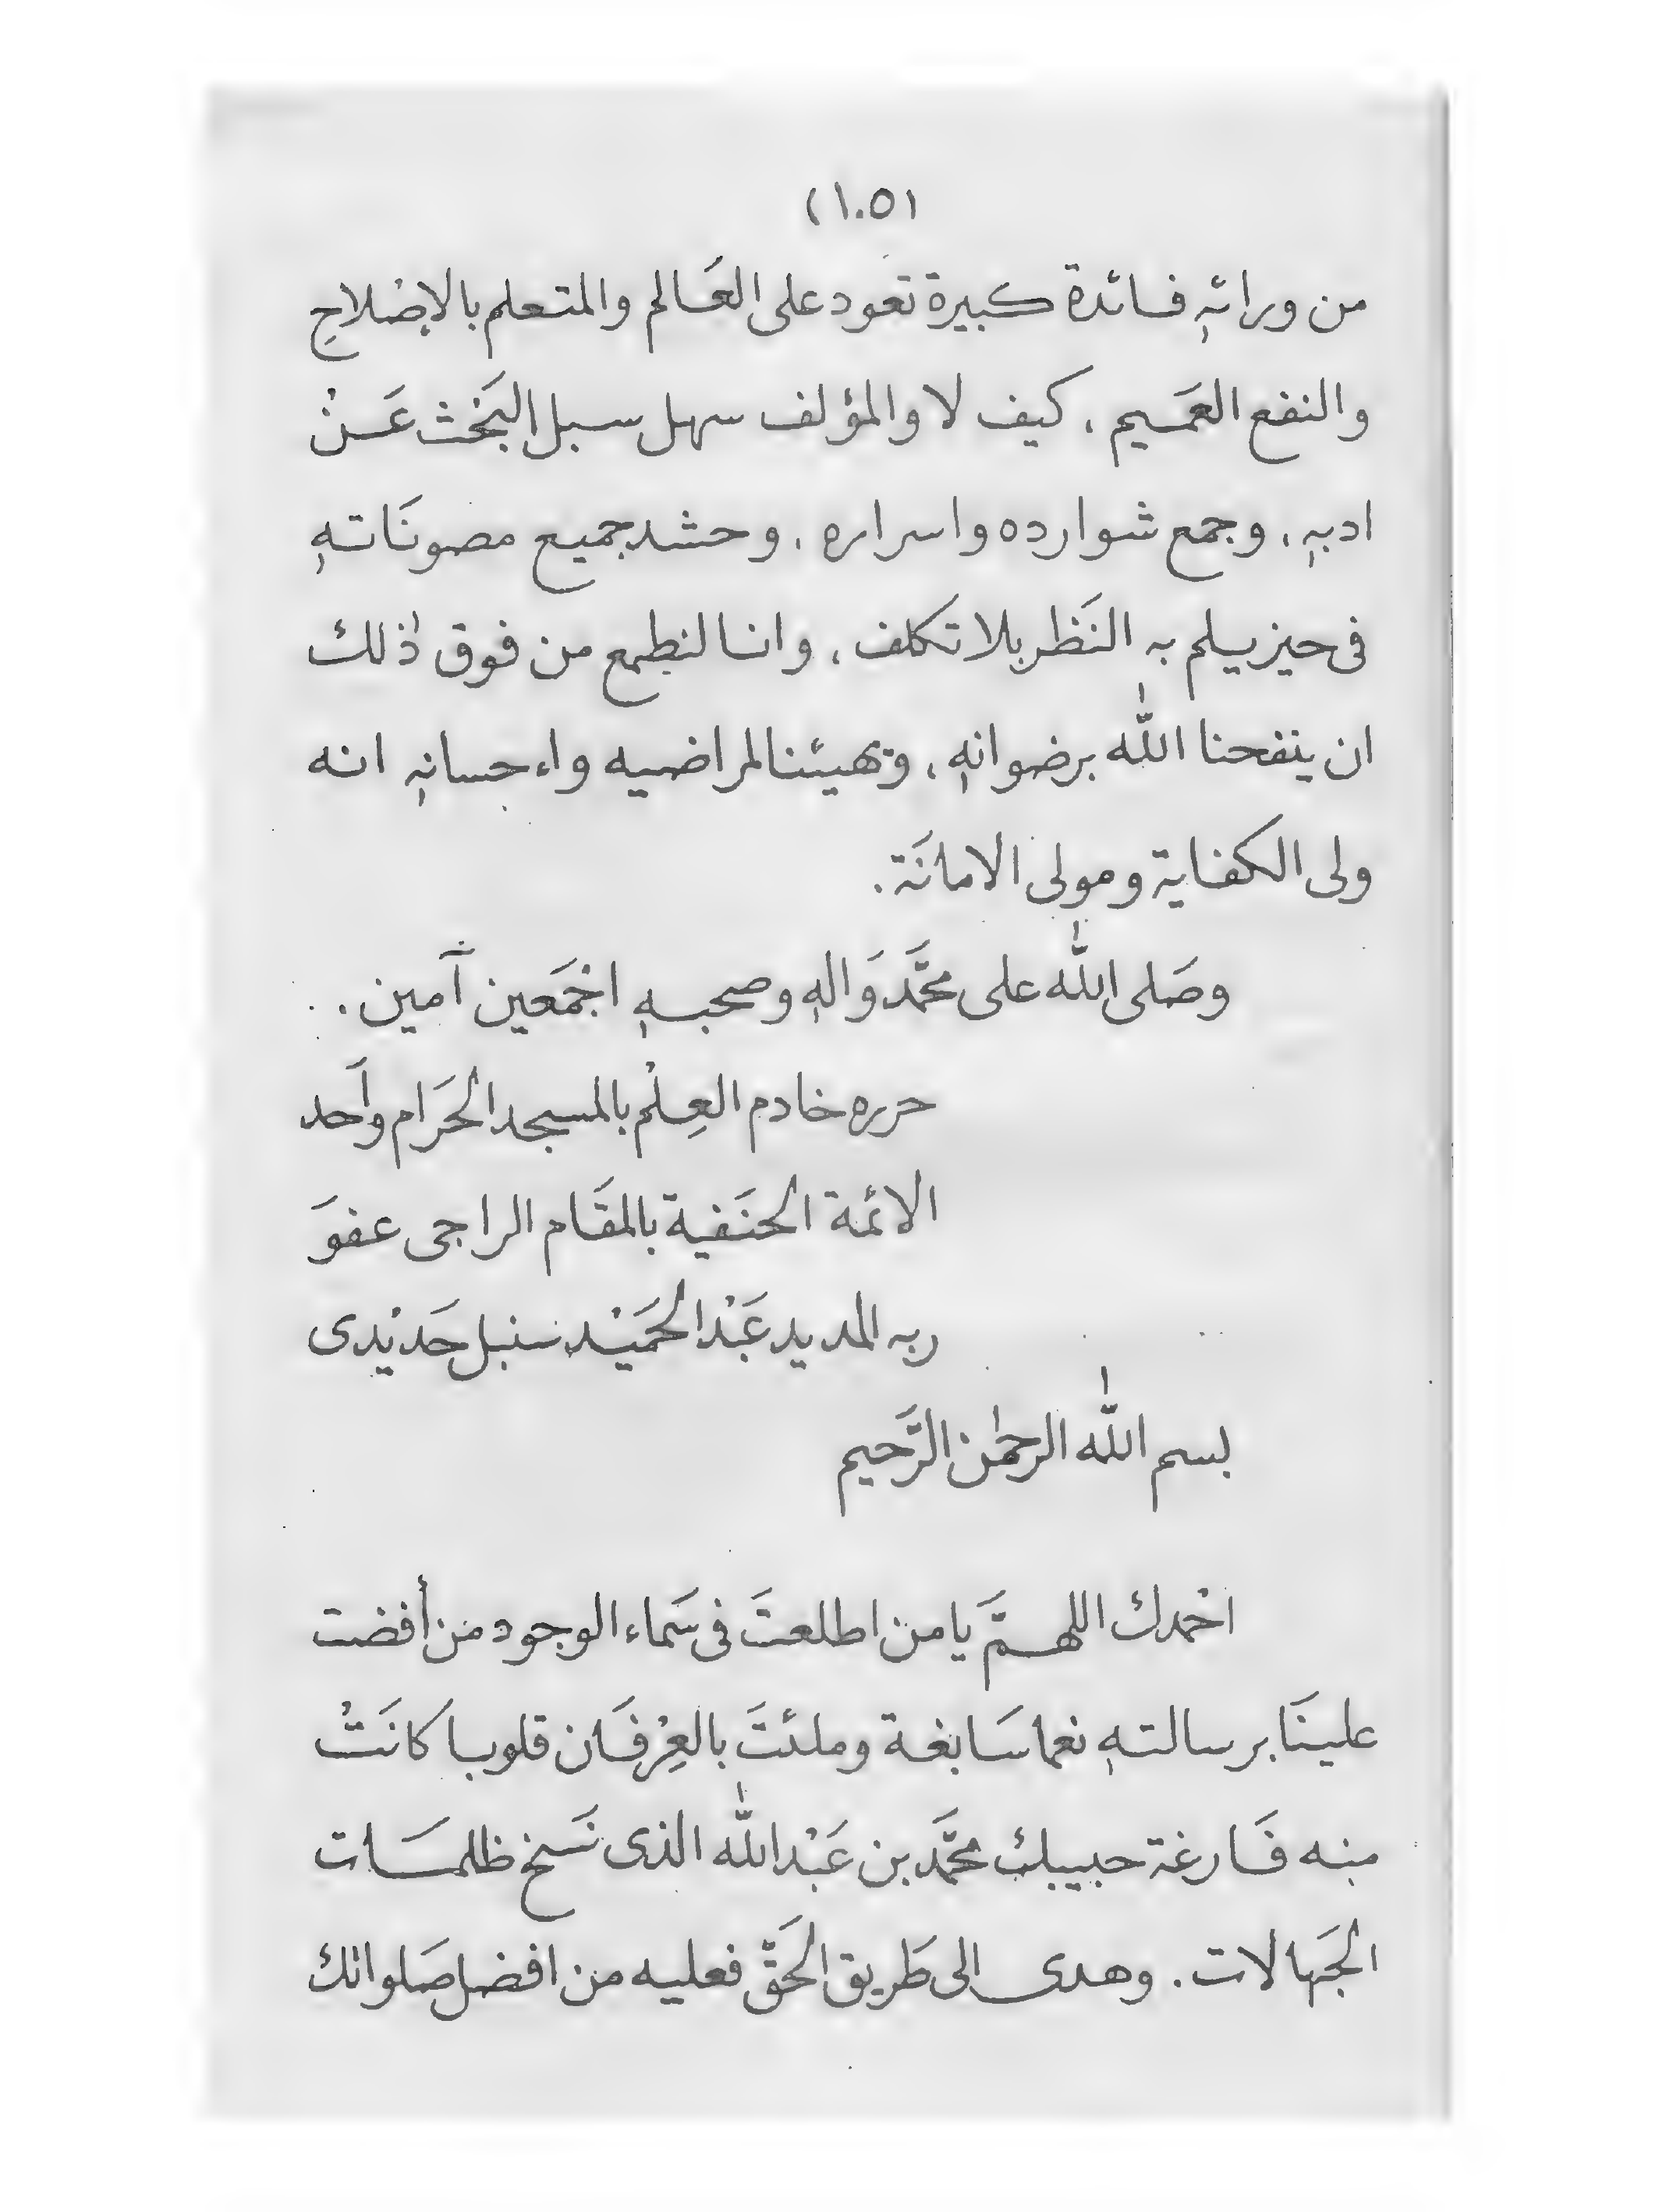 (١٠٥)
من ورائهٖ فائدة كبيرة تعود على العَالم والمتعلم بالاِصْلاحِ
والنفع العَميم، كيف لا والمؤلف سهل سبل البَحْث عَنْ
ادبهٖ، وجمع شوارده واسراره، وحشد جميع مصونَاتهٖ
فى حيز يسلم به النَظر بلا تكلف، وانا لنطمع من فوق ذٰلك
ان ينفحنا اللّٰه برضوانهٖ، وتهيئنا لمراضيه واءحسانهٖ انه
ولى الكفاية ومولى الامانَة.
وصَلى اللّٰه على محمَّد وَالهٖ وصحبهٖ اجْمَعين آمين.
حرره خادم العِلْم بالمسجد الحَرَام وأَحد
الائمة الحنَفية بالمقَام الراجى عفوَ
ربه المديد عَبْد الحَميْد سنبل حَديْدى
بسم اللّٰه الرحمٰن الرَّحيم
احْمدك اللهمَّ يا من اطلعتَ فى سَماء الوجود من أفضت
علينَا برسالتهٖ نعما سَابغة وملئتَ بالعِرْفَان قلوبا كانَتْ
منه فَارغة حبيبك محمَّد بن عَبْد اللّٰه الذى نَسخ ظلمَات
الجَهالات. وهدى الى طَريق الحَقّ فعليه من افضل صَلواتك